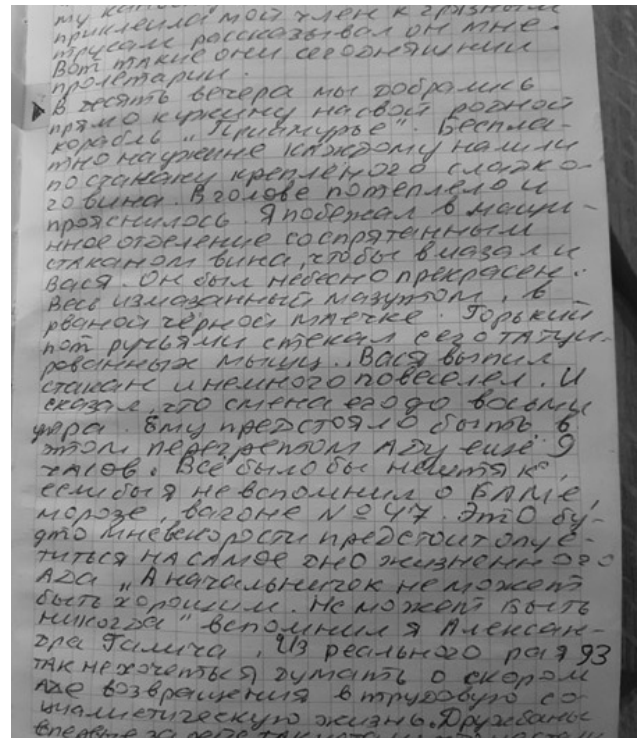 приклеила мой член к грязным
трусам рассказывал он мне.
Вот такие они сегодняшнии
пролетарии.
В десять вечера мы добрались
прямо к ужину на свой родной
корабль „Приамурье". Беспла-
тно на ужине каждому налили
по стакану крепленого сладко-
го вина. В голове потеплело и
прояснилось. Я побежал в маши-
нное отделение со спрятанным
стаканом вина, чтобы вмазал и
Вася. Он был небесно прекрасен.
Весь измазанный мазутом, в
рваной чёрной маечке. Горький
пот ручьями стекал с его татуи-
рованных мышц. Вася выпил
стакан и немного повеселел. И
сказал, что смена его до восьми
утра. Ему предстояло быть в
этом перегретом Аду ещё 9
часов. Всё было бы ништяк,
если бы я не вспомнил о БАМе,
морозе, вагоне № 47. Это бу-
дто мне вскорости предстоит опус-
титься на самое дно жизненного
Ада „А начальничок не может
быть хорошим. Не может быть
никогда" вспомнил я Алексан-
дра Галича. Из реального рая 93
так не хочеться думать о скором
Аде возвращения в трудовую со-
циалистическую жизнь. Дружбаны
впервые за